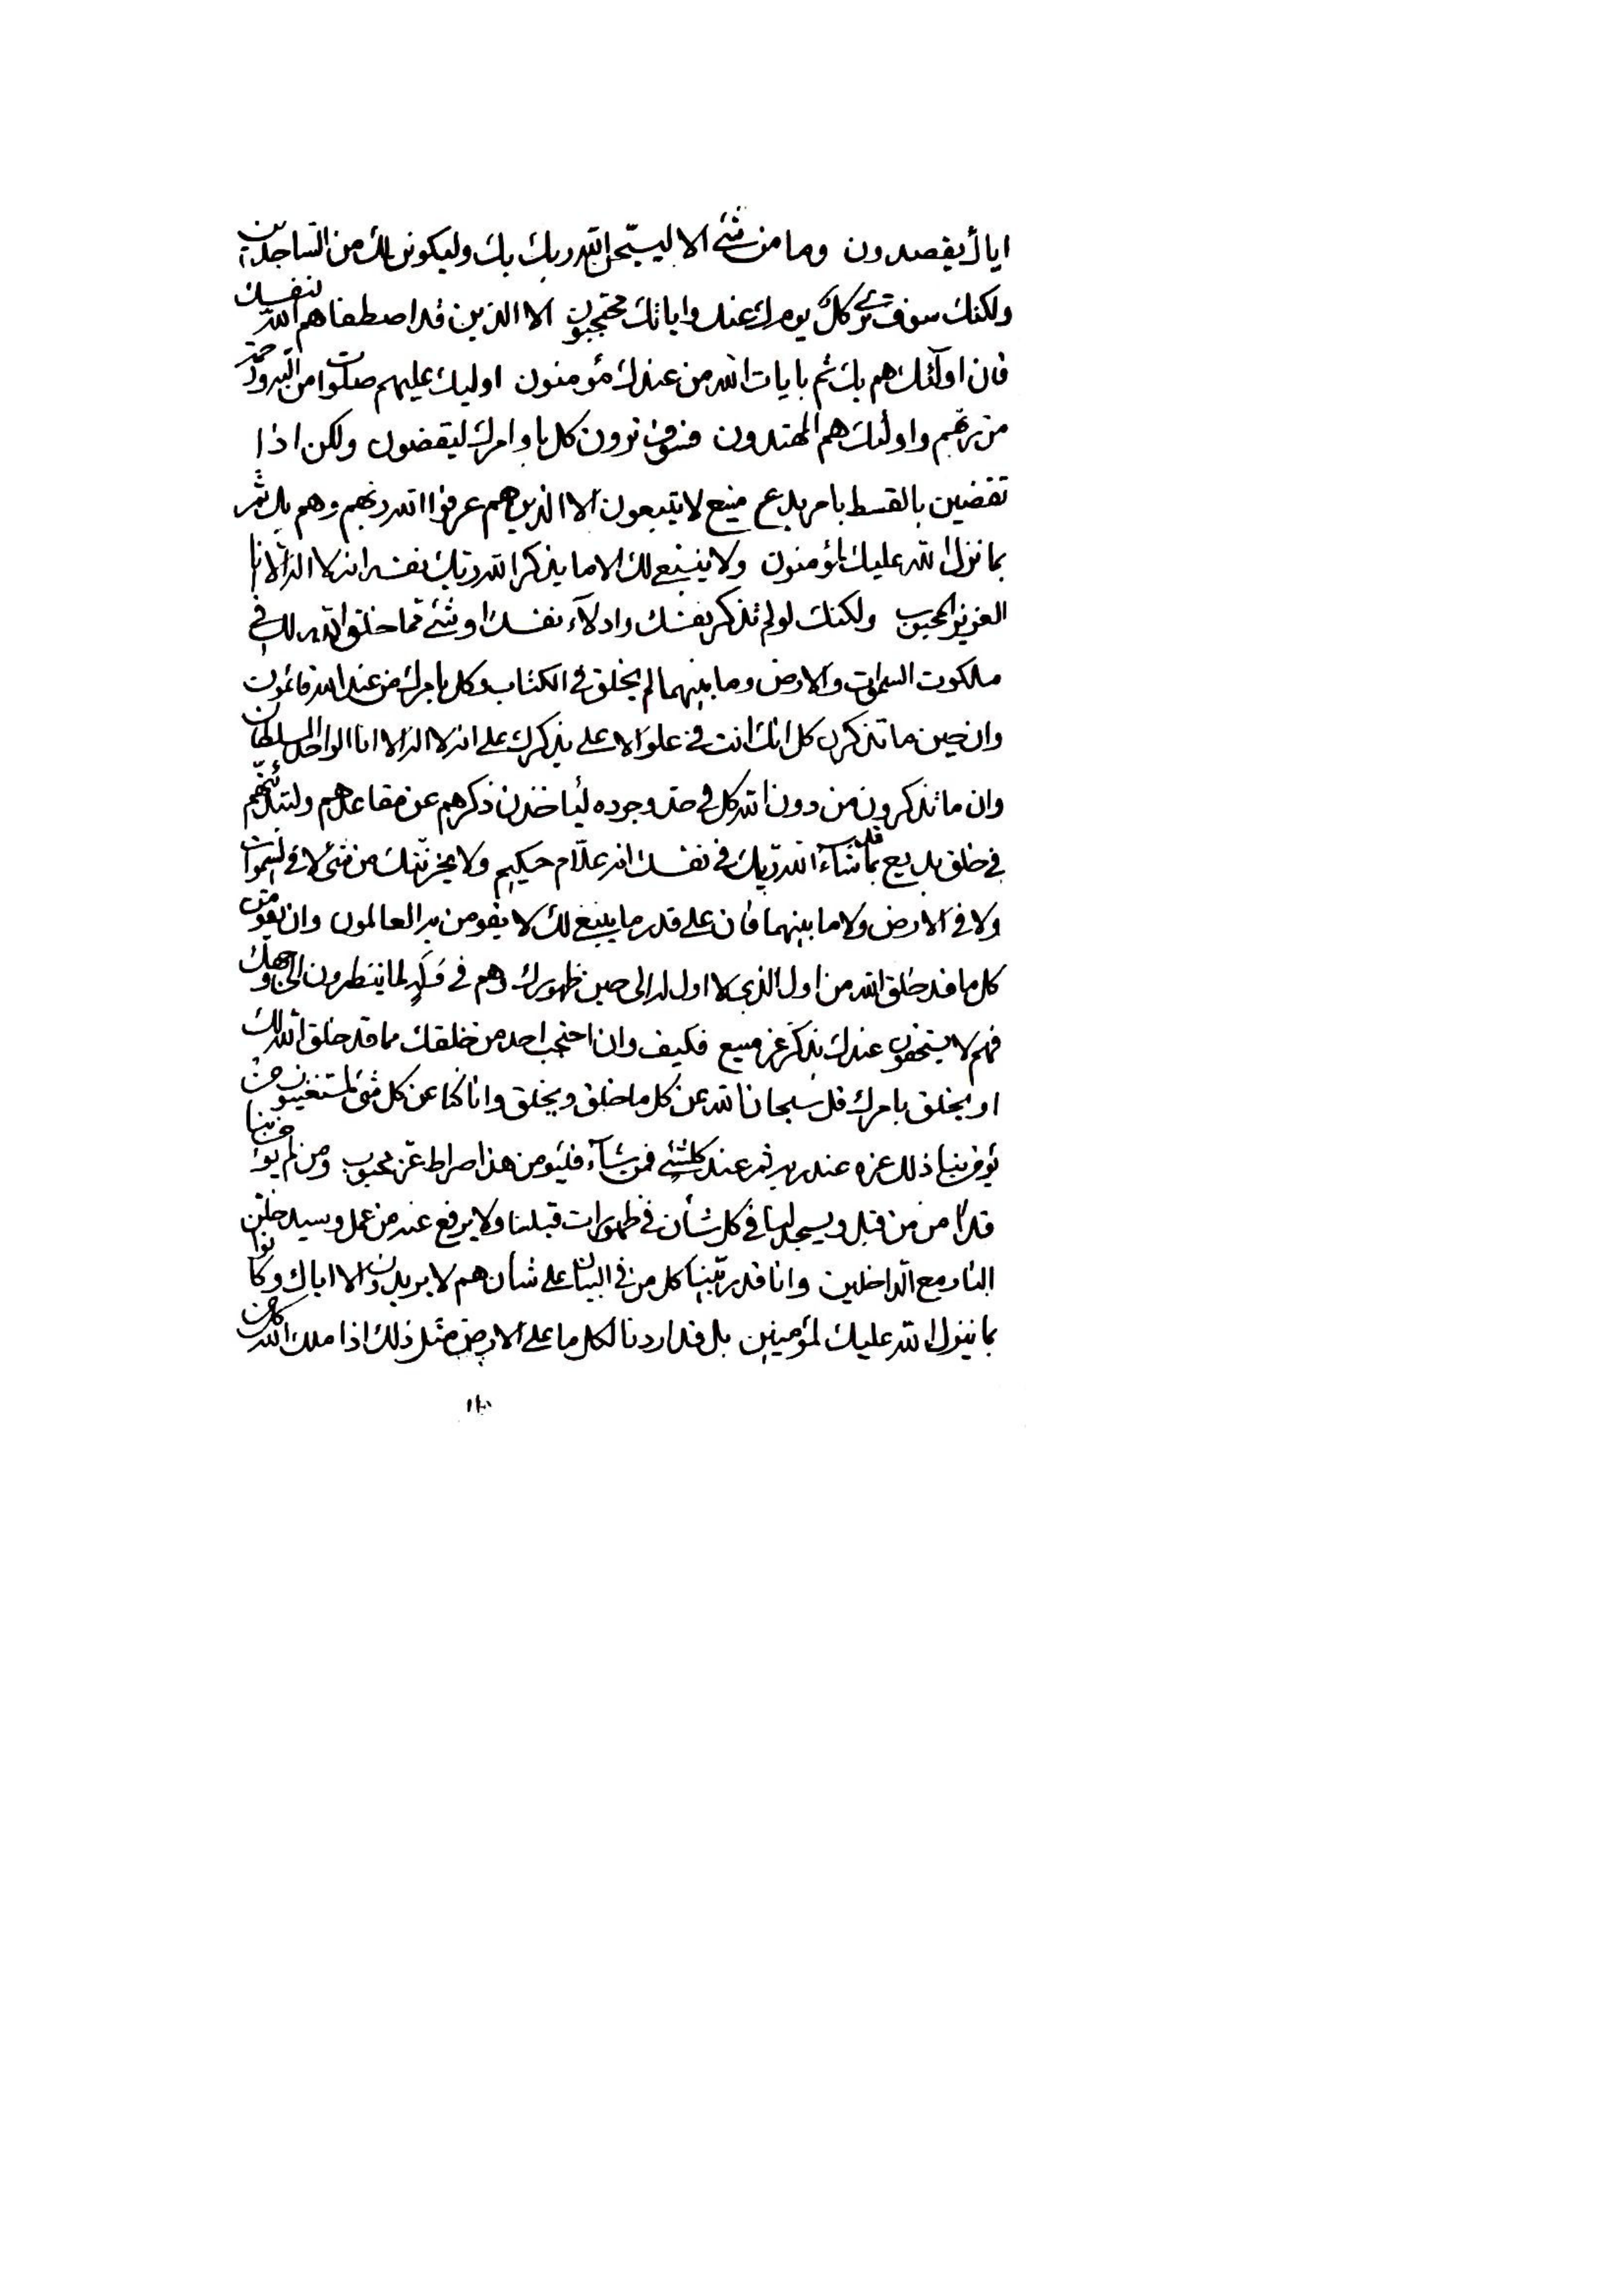 اياك يقصدون وما من شئ الا ليسبحن الله ربك بك وليكونن لك من الساجدين
ولكنك سوف ترى كل يومك عنك واياتك محتجبون الا الذين قد اصطفاهم الله لنفسك
فان اولئك هم بك ثم بايات الله من عندك مؤمنون اولئك عليهم صلوات من الله ورحمة
من ربهم واولئك هم المهتدون فسوف ترون كل باوامرك ليقضون ولكن اذا
تقضين بالقسط بامر بدع منيع لا يتبعون الا الذين هم عرفوا الله ربهم وهم بك ثم
بما نزل الله عليك لمؤمنون ولا ينبغي لك الا ما يذكر الله ربك نفسه انه لا اله الا انا
العزيز المحبوب ولكنك لو لم تذكر نفسك وادلاء نفسك او شئ مما خلق الله لك في
ملكوت السموات والارض وما بينهما لم يخلق في الكتاب وكل بامرك من عند الله قائمون
وان حين ما تذكرن كل انك انت في علو الاعلى يذكرك على انه لا اله الا انا الواحد السلطان
وان ما تذكرون من دون الله كل في حد وجوده ليأخذن ذكرهم عن مقاعدهم ولتبدلنهم
في خلق بديع بما قد شاء الله ربك في نفسك انه علام حكيم ولا يحزننك من شئ لا في السموات
ولا في الارض ولا ما بينهما فان على قدر ما ينبغي لك لا يؤمن به العالمون وان يؤمنن
كل ما قد خلق الله من اول الذي لا اول له الى حين ظهورك وهم في لما ينتظرون الى وجهك
فهم لا يستحقون عندك بذكر عز منيع فكيف وان احتجب احد من خلقك مما قد خلق الله لك
او يخلق بامرك قل سبحان الله عن كل ما خلق ويخلق وانا كنا عن كل شئ لمستغنيون من
يؤمن بنا ذلك عزه عند ربه ثم عند كلشئ فمن شاء فليؤمن هذا صراط عز محبوب ومن لم يؤمن بنا
قد امن من قبل ويسجد لنا في كل شأن في ظهورات قبلنا ولا يرفع عنه من عمل وسيدخلن
النار مع الداخلين وانا قد ربينا كل من في البيان على شأن هم لا يريدون الا اياك وكانوا
بما ينزل الله عليك لمؤمنين بل قد اردنا لكل ما على الارض مثل ذلك اذا ملك الله